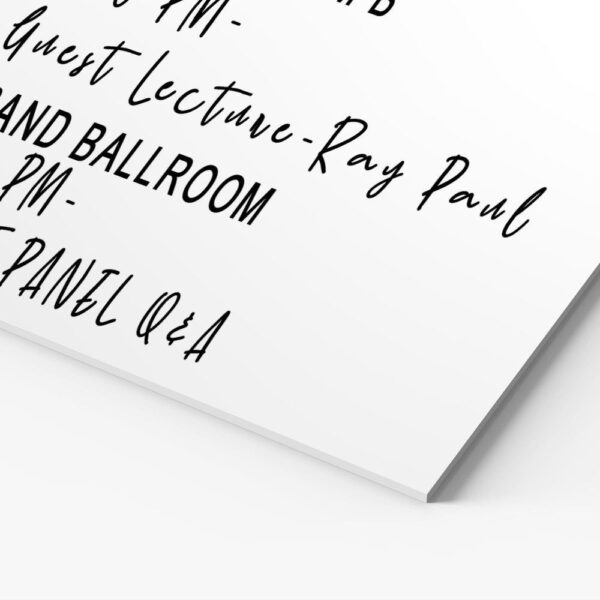 PM-
Guest Lecture-Ray Paul
BALLROOM
PM-
PANEL Q&A